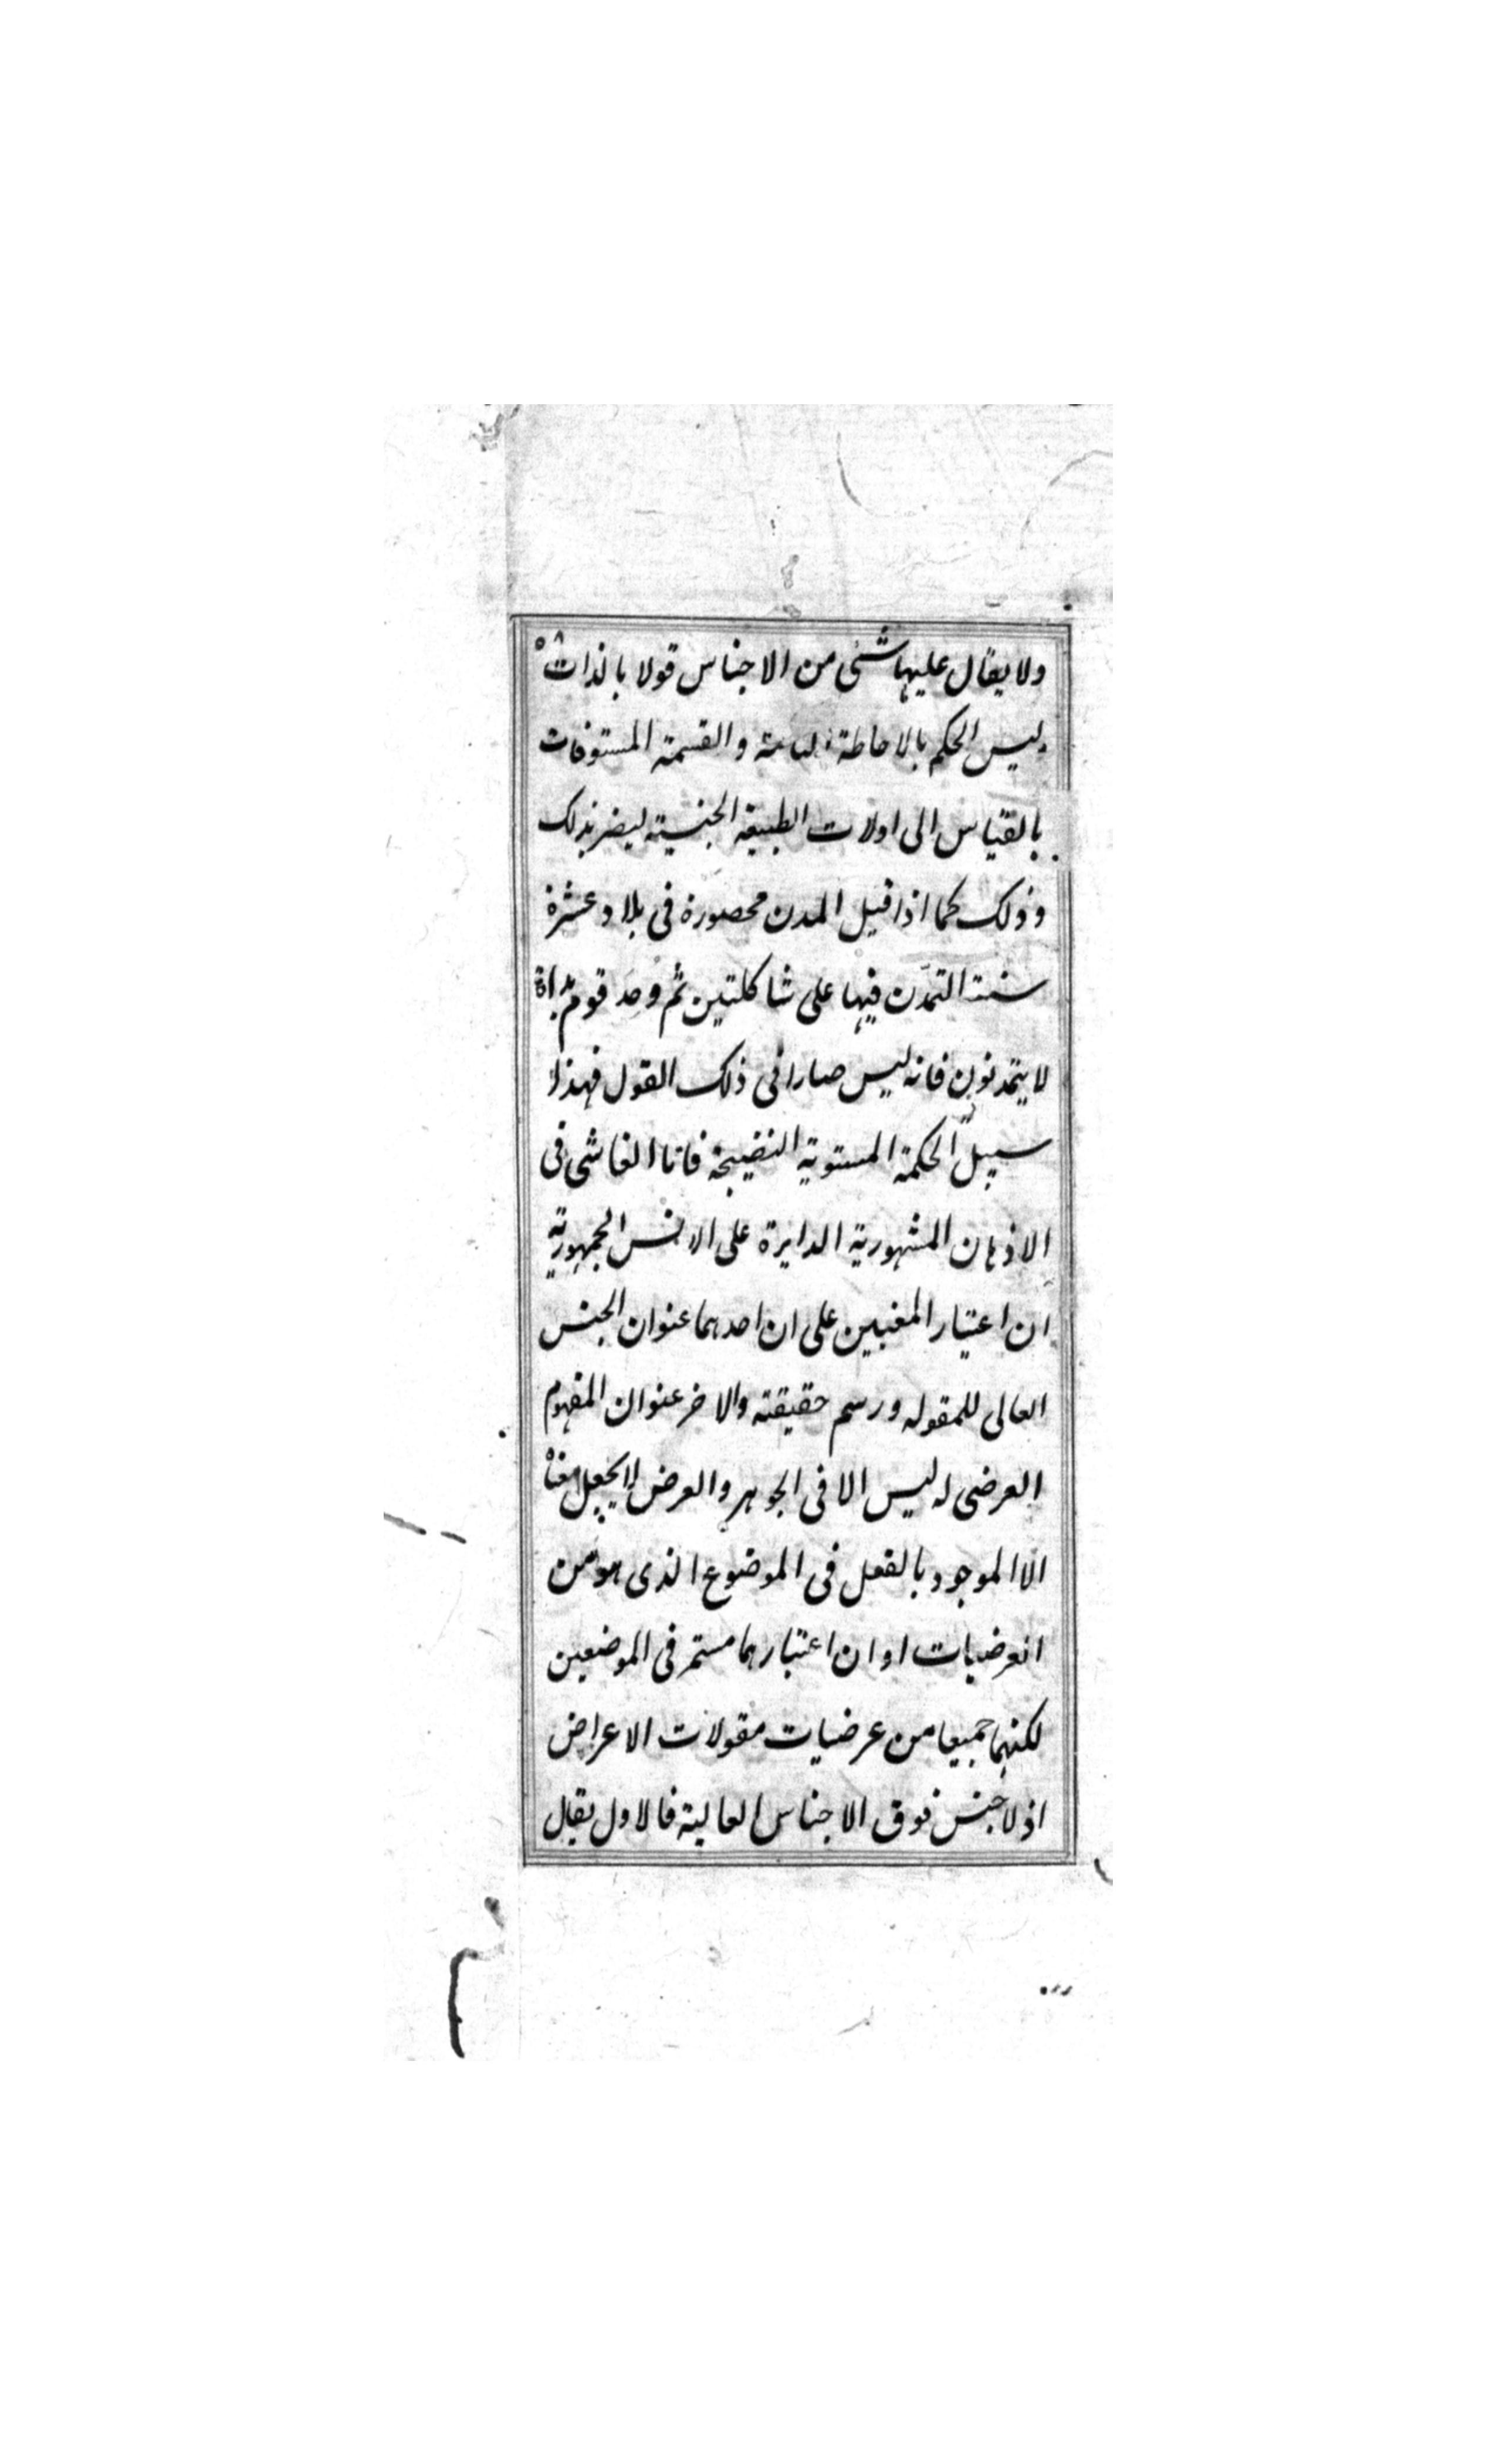 ولا يقال عليها شئ من الاجناس قولا بالذات
ليس الحكم بالاحاطة التامة والقسمة المستوفات
بالقياس الى اولات الطبيعة الجنسية ليضر بذلك
وذلك كما اذا قيل المدن محصورة فى بلاد عشرة
سنت التمدّن فيها على شاكلتين ثم وجد قوم بداة
لا يتمدنون فانه ليس ضارا فى ذلك القول فهذا
سبيل الحكمة المستوية النضيجة فاما الفاشى فى
الاذهان المشهورية الدايرة على الالسن الجمهورية
ان اعتبار المعنيين على ان احدهما عنوان الجنس
العالى للمقوله ورسم حقيقته والاخر عنوان المفهوم
العرضى له ليس الا فى الجوهر والعرض لا يجعل معناه
الا الموجود بالفعل فى الموضوع الذى هو من
العرضيات او ان اعتبارهما مستمر فى الموضعين
لكنهما جميعا من عرضيات مقولات الاعراض
اذ لا جنس فوق الاجناس العالية فالاول يقال